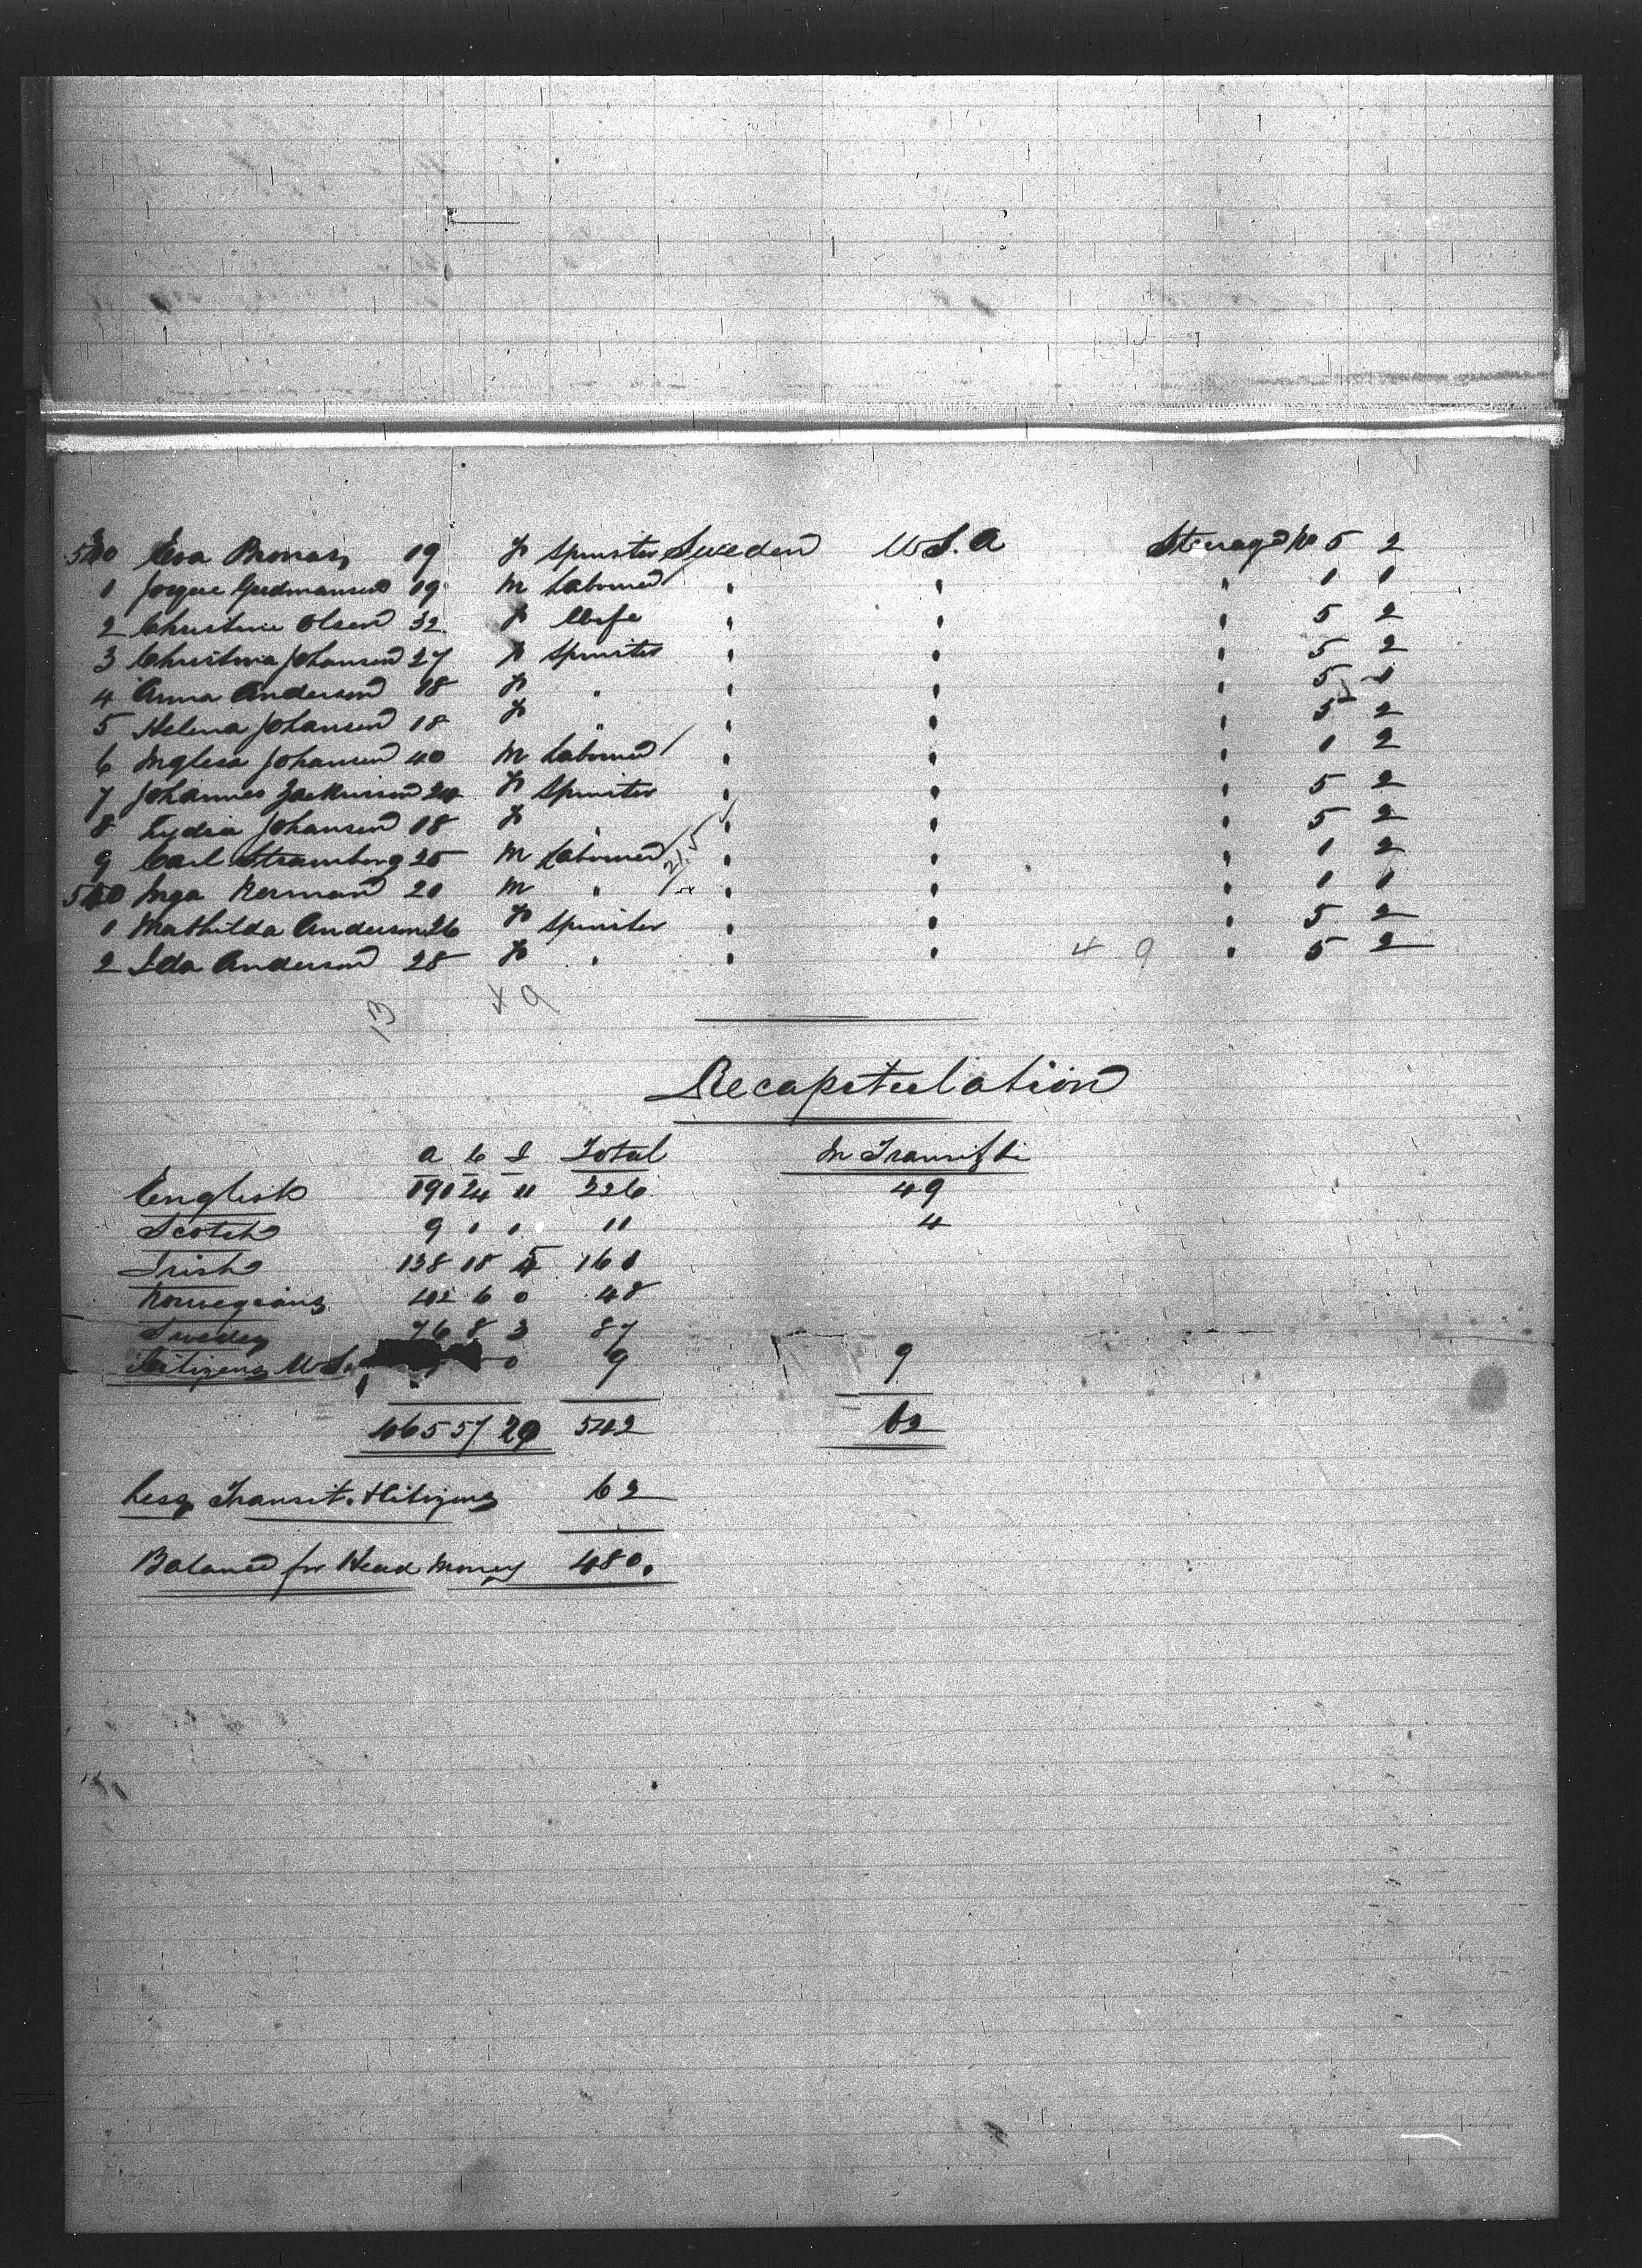 530 Eva 19 F Spinster Sweden U.S.A Steerage No 5 2
1 19 M Labourer " " " 1 1
2 Christine Olsen 32 F Wife " " " 5 2
3 Christina Johansen 27 F Spinster " " " 5 2
4 Anna Anderson 18 F " " " " 5 1
5 Helena Johansen 18 F " " " " 5 2
6 Johansen 40 M Labourer / " " " 1 2
7 Johannes 24 F Spinster " " " 5 2
8 Lydia Johansen 18 F " " " " 5 2
9 Carl Stromberg 25 M Labourer " " " 1 2
540 Inga Herman 20 M " " " " 1 1
1 Mathilda Anderson 26 F Spinster " " " 5 2
2 Ida Anderson 28 F " " " 4 9 " 5 2
13 4 9
Recapitulation
A C I Total In Transit
English 191 24 11 226 49
Scotch 9 1 1 11 4
Irish 138 18 5 161
Norwegians 42 6 0 48
Swedes 76 8 3 87
Citizens U.S. 0 9 9
465 57 20 542 62
Less Transit & Citizens 62
Balance for Head Money 480.